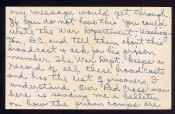 any message would get through.
If you do not have this you could
write the War Department, Washing-
ton, D.C. and tell them about this
broadcast & ask for his prison
number. The War Dept. keeps a
record of all these broadcasts
and has the list of prisoners I
understand. Our Red Cross man
here is sending me a bulletin
on how the prison camps are